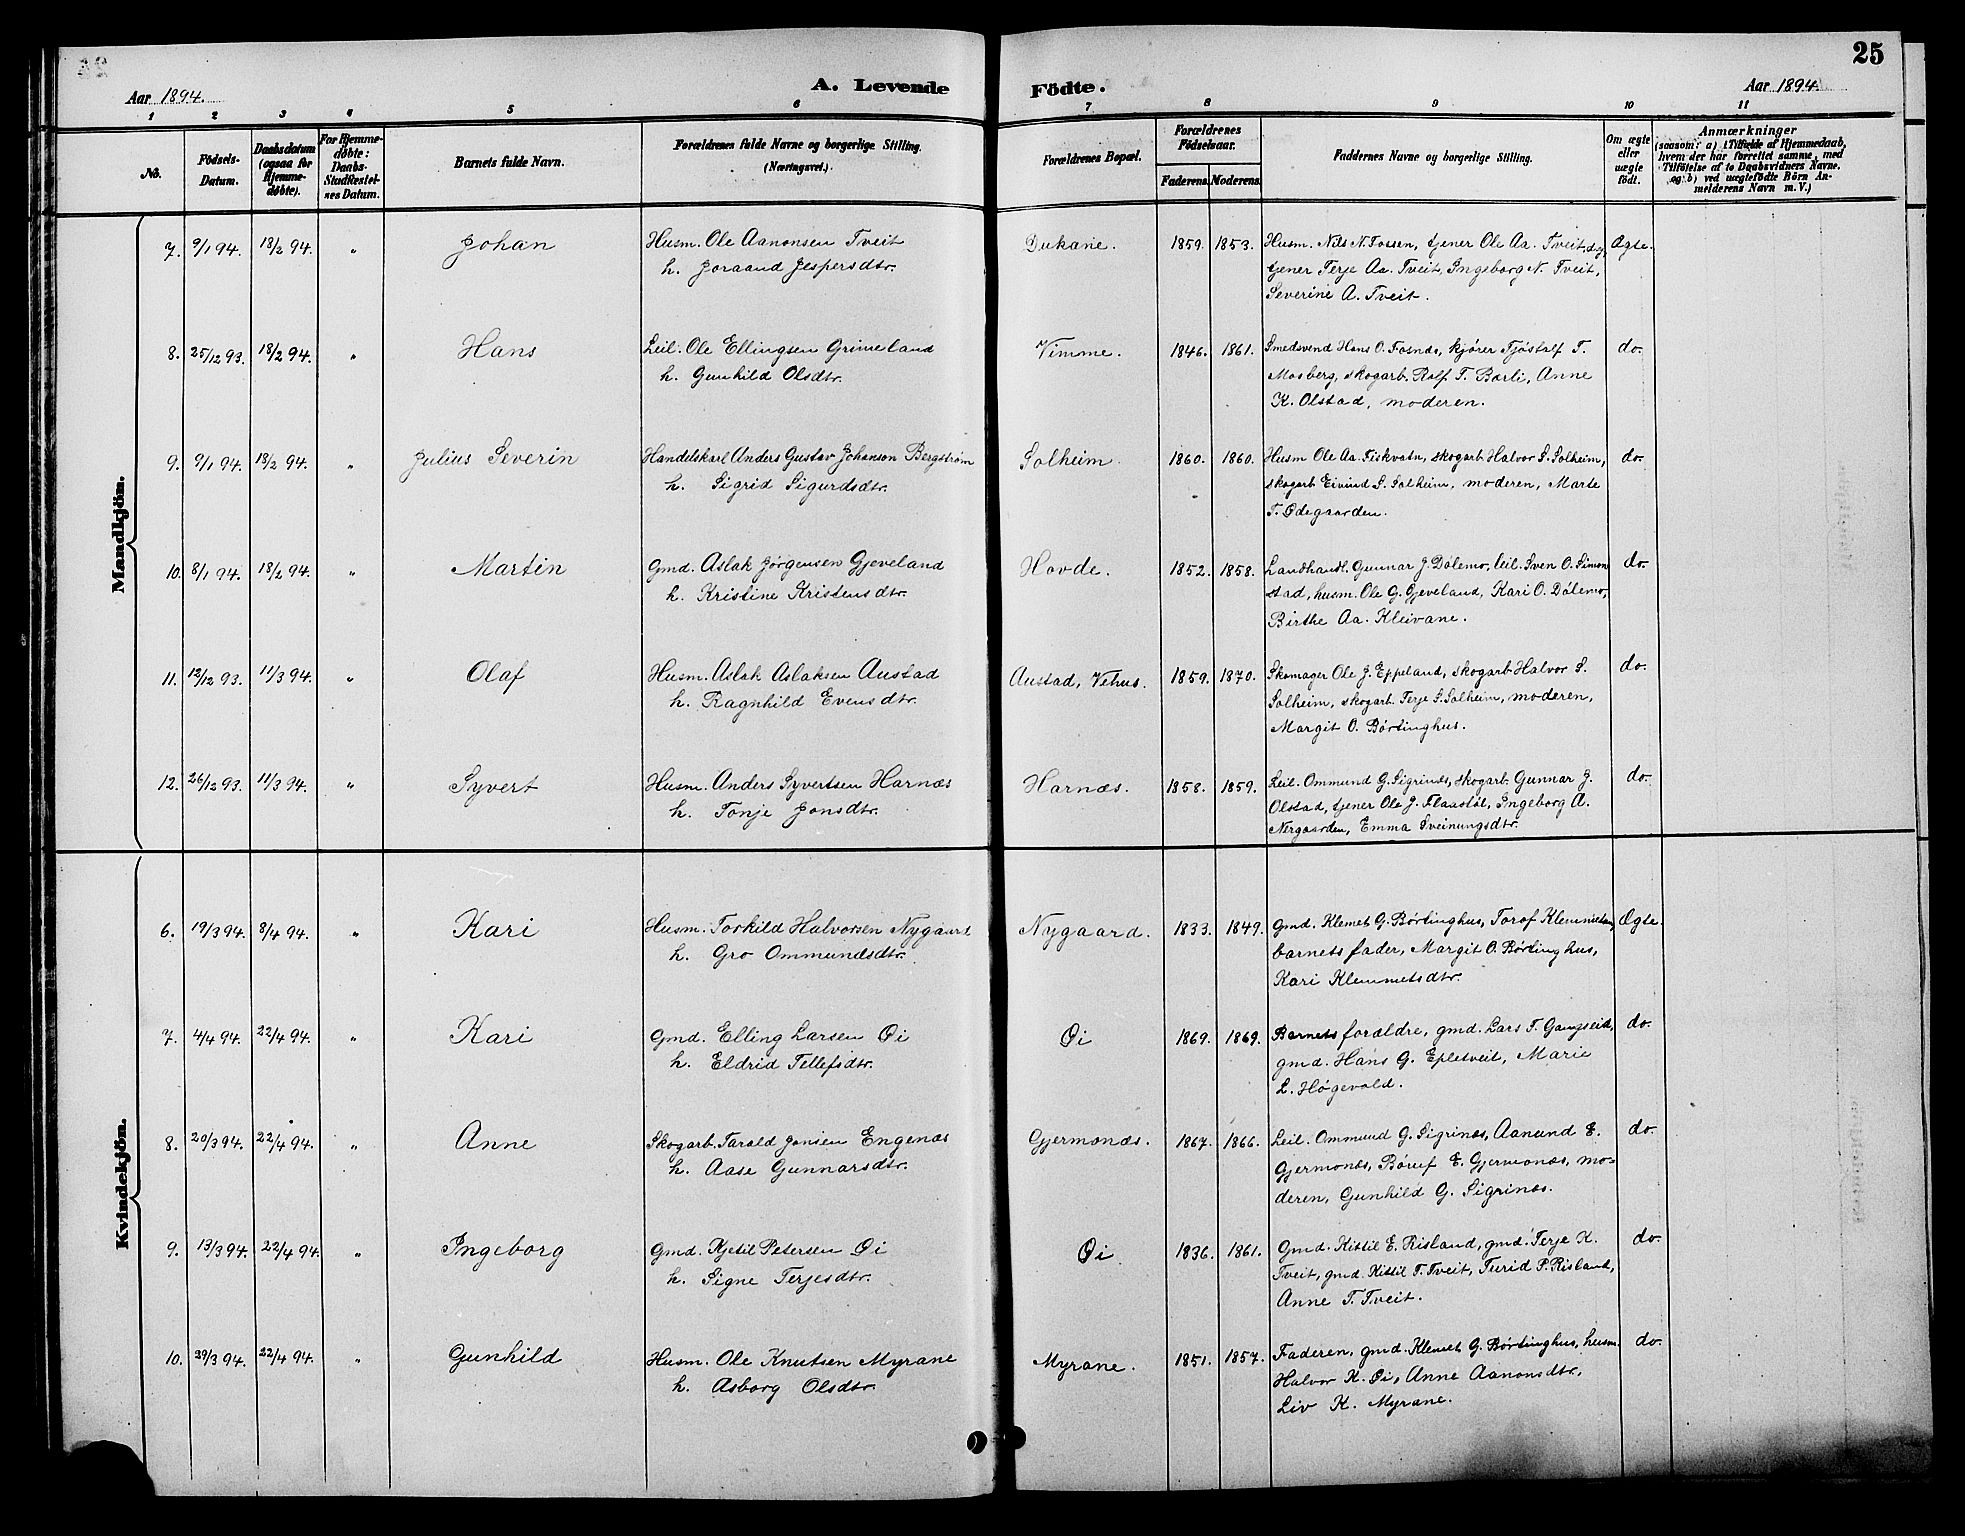 25
Aar 1894.
A. Levende Födte.
Aar 1894.
1 2 3 4 5 6 7 8 9 10 11
No.
Födsels-Datum.
Daabsdatum (ogsaa for Hjemme-döbte).
For Hjemme-döbte: Daabs-Stadfæstel-ses Datum.
Barnets fulde Navn.
Forældrenes fulde Navne og borgerlige Stilling. (Næringsvei.)
Forældrenes Bopæl.
Forældrenes Födselsaar.
Faderens. Moderens.
Faddernes Navne og borgerlige Stilling.
Om ægte eller uægte født.
Anmærkninger (saasom: a) i Tilfælde af Hjemmedaab, hvem der har forrettet samme, med Tilföielse af to Daabsvidners Navne, og b) ved uægtefödte Börn An-melderens Navn m.V.)
Mandkjön.
7. 9/1 94. 18/2 94. " Johan Husm. Ole Aanonsen Tveit Dukane. 1859. 1853. Husm. Nils N. Fossen, tjener Ole Aa. Tveit, Ægte.
h. Joraand Jespersdtr. tjener Terje Aa. Tveit, Ingeborg N. Tveit,
Severine A. Tveit.
8. 25/12 93. 18/2 94. " Hans Leil. Ole Ellingsen Grimeland Vimme. 1846. 1861. Smedsvend Hans O. Fosnæs, kjører Tjøstolf T. do.
h. Gunhild Olsdtr. Mosberg, skogarb. Rolf T. Bærli, Anne
K. Olstad, moderen.
9. 9/1 94. 18/2 94. " Julius Severin Handelskarl Anders Gustav Johanson Bergstrøm Solheim. 1860. 1860. Husm Ole Aa. Fiskvatn, skogarb Halvor S. Solheim, do.
h. Sigrid Sigurdsdtr. skogarb Eivind S. Solheim, moderen, Marte
T. Ødegaarden.
10. 8/1 94. 18/2 94. " Martin Gmd. Aslak Jørgensen Gjeveland Hovde. 1852. 1858. Landhandl. Gunnar J. Dølemo, leil. Sven O. Simon do.
h. Kristine Kristensdtr. stad, husm. Ole G. Gjeveland, Kari O. Dølemo,
Birthe Aa. Kleivane.
11. 12/12 93. 11/3 94. " Olaf Husm. Aslak Aslaksen Austad Austad, Vehus. 1859. 1870. Skomager Ole J. Eppeland, skogarb Halvor S. do.
h. Ragnhild Evensdtr. Solheim, skogarb. Terje S. Solheim, moderen,
Margit O. Børtinghus.
12. 26/12 93. 11/3 94. " Syvert Husm. Anders Syvertsen Harnæs Harnæs. 1858. 1859. Leil. Ommund G. Sigrinæs, skogarb. Gunnar J. do.
h. Tonje Jonsdtr. Olstad, tjener Ole J. Flaastøl, Ingeborg A.
Nergaarden, Emma Sveinungsdtr.
Kvindekjön.
6. 19/3 94. 8/4 94. " Kari Husm. Torkild Halvorsen Nygaard Nygaard. 1833. 1849. Gmd. Klemet G. Børtinghus, Torof Klemmetsen, Ægte.
h. Gro Ommundsdtr. barnets fader, Margit O. Børtinghus,
Kari Klemmetsdtr.
7. 4/4 94. 22/4 94. " Kari Gmd. Elling Larsen Øi Øi 1869. 1869. Barnets forældre, gmd. Lars T. Gangseid, do.
h. Eldrid Tellefsdtr. gmd. Hans G. Epletveit, Marie
L. Høgevold.
8. 20/3 94. 22/4 94. " Anne Skogarb. Tarald Jonsen Engenæs Gjermonæs. 1867. 1866. Leil. Ommund G. Sigrinæs, Aanund E. do.
h. Aase Gunnarsdtr. Gjermonæs, Børuf E. Gjermonæs, mo=
deren, Gunhild G. Sigrinæs.
9. 13/3 94. 22/4 94. " Ingeborg Gmd. Kjetil Petersen Øi Øi 1836. 1861. Gmd. Kittil E. Risland, gmd. Terje K. do.
h. Signe Terjesdtr. Tveit, gmd. Kittil T. Tveit, Turid P. Risland,
Anne T. Tveit.
10. 29/3 94. 22/4 94. " Gunhild Husm. Ole Knutsen Myrane Myrane. 1851. 1857. Faderen, gmd. Klemet G. Børtinghus, husm. do.
h. Asborg Olsdtr. Halvor K. Øi, Anne Aanonsdtr,
Liv K. Myrane.